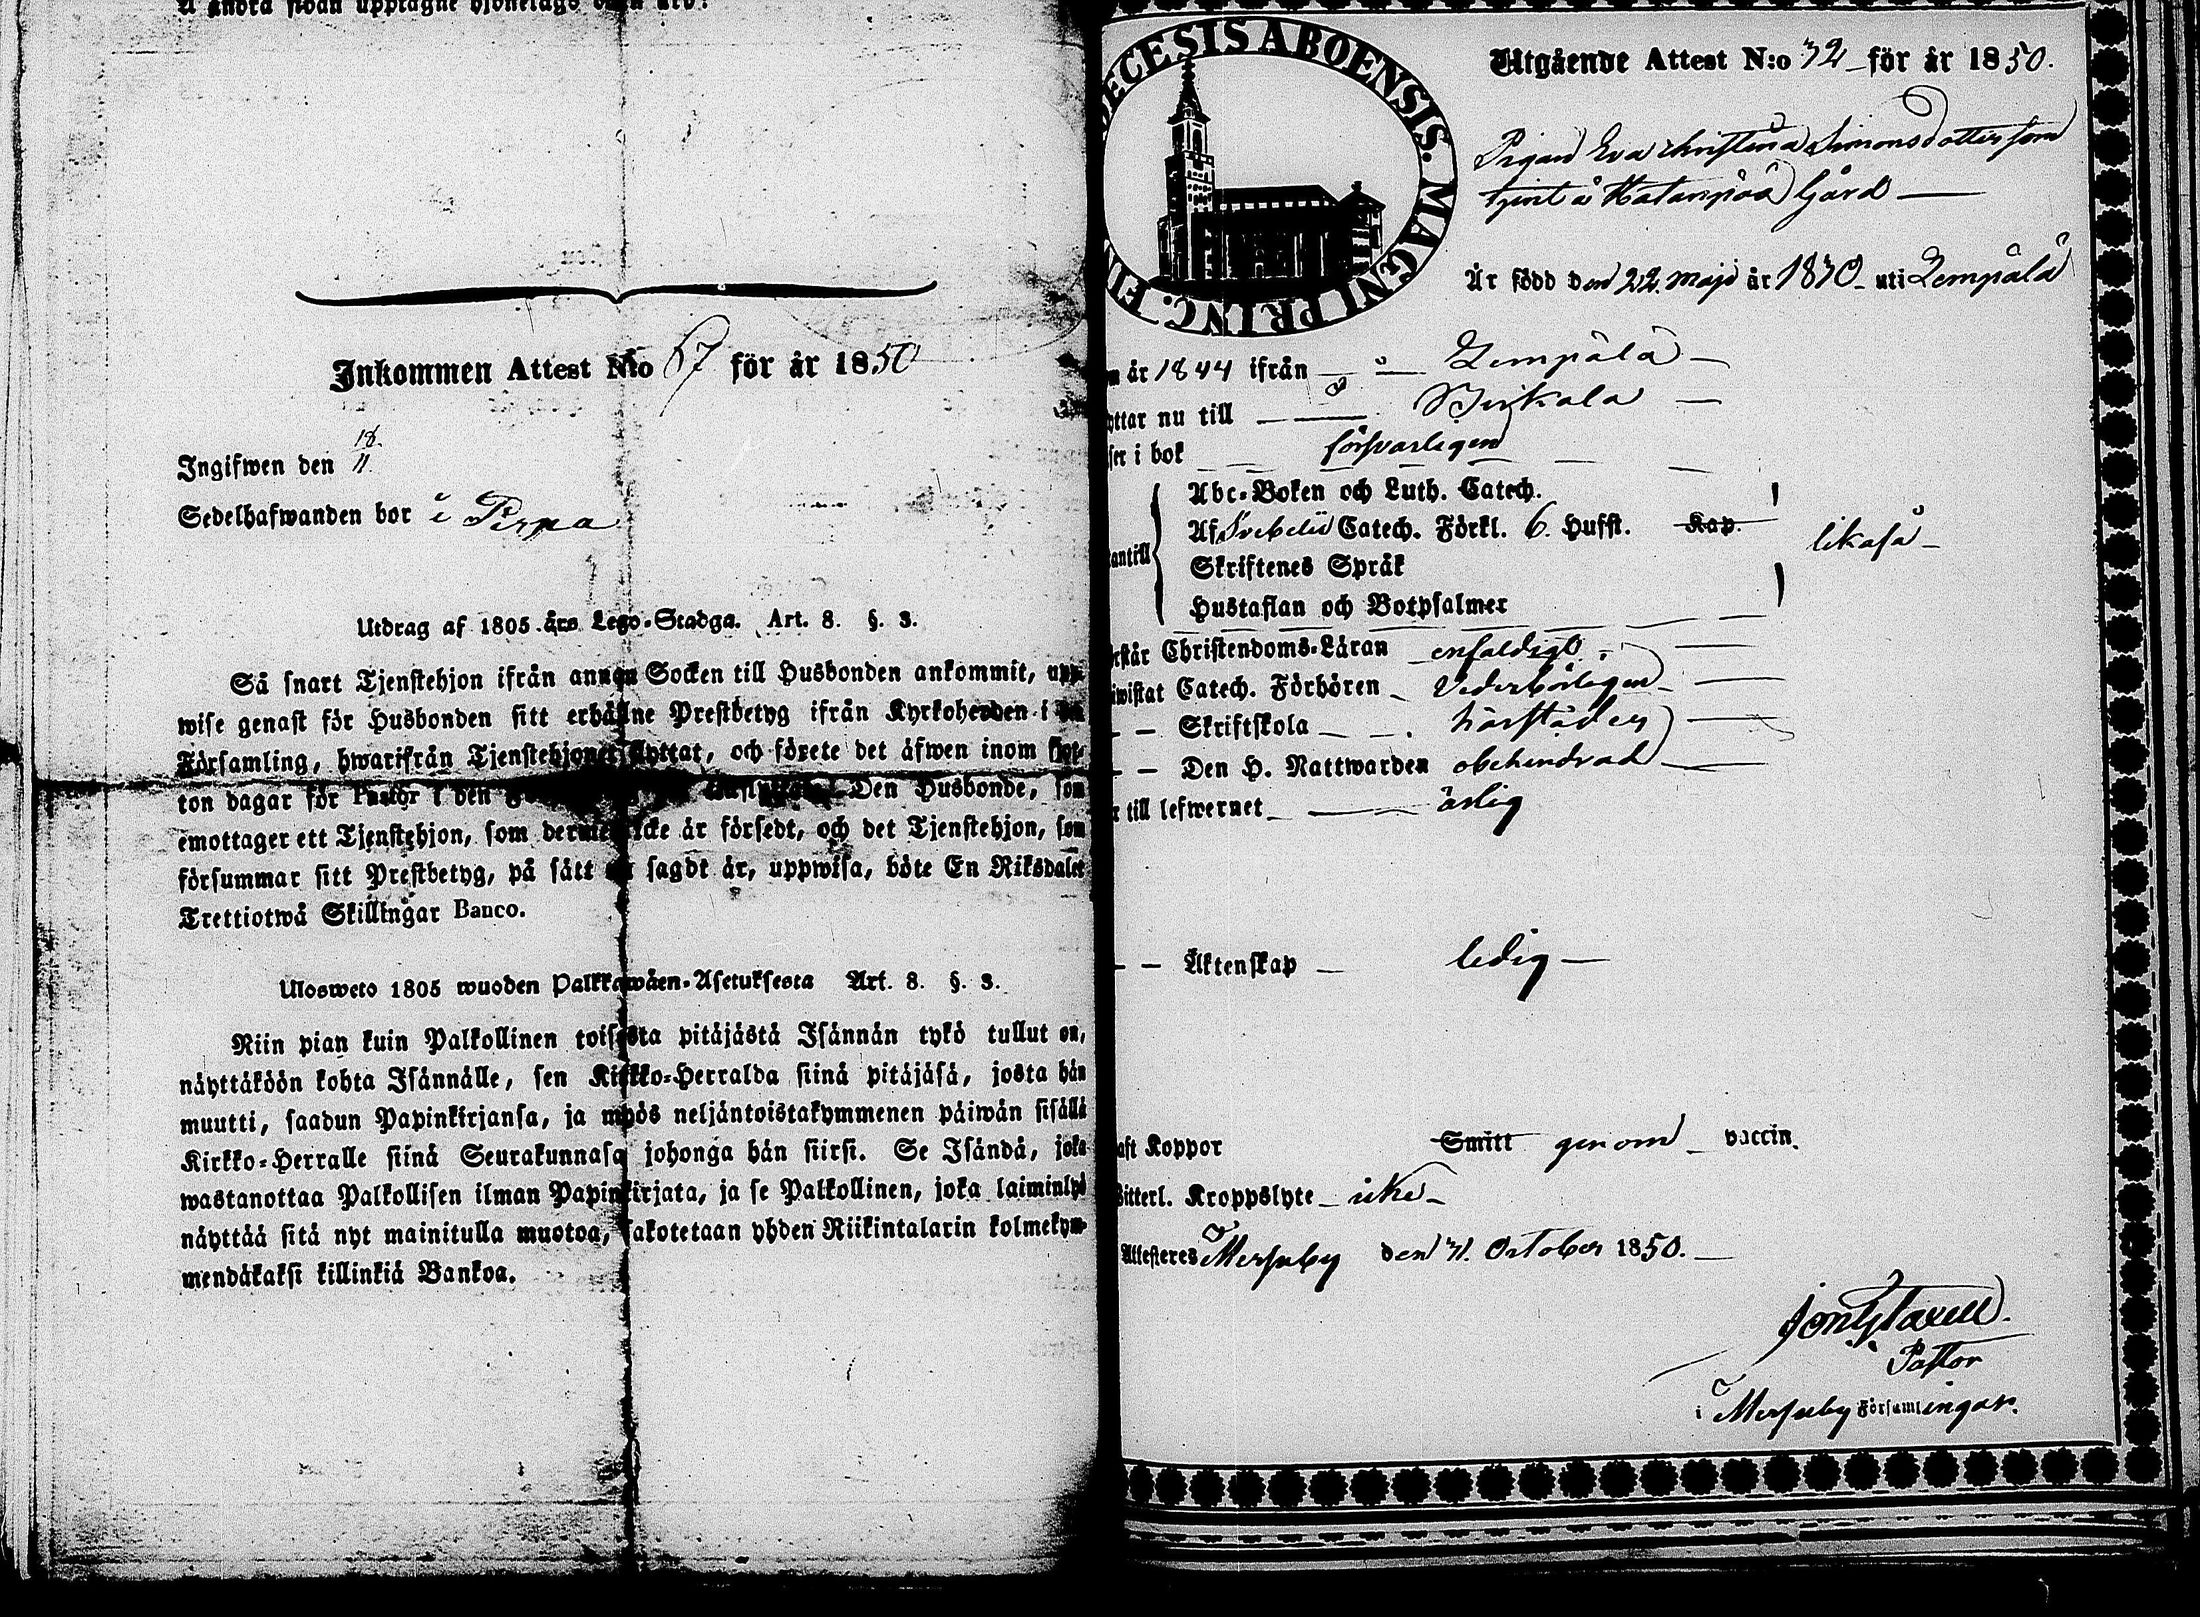 Å andra sidan upptagne hjonelags
Inkommen Attest N:o 67 för år 1850
Ingifwen den 18/11
Sedelhafwanden bor i Pirpa
Utdrag af 1805 års Lego-Stadga. Art. 8. §. 3.
Så snart Tjenstehjon ifrån annan Socken till Husbonden ankommit, upp-
wise genast för Husbonden sitt erhållne Prestbetyg ifrån Kyrkoherden i den
Församling, hwarifrån Tjenstehjonet flyttat, och förete det äfwen inom fjor-
ton dagar för Pastor i den Den Husbonde, som
emottager ett Tjenstehjon, som dermed icke är försedt, och det Tjenstehjon, som
försummar sitt Prestbetyg, på sätt sagdt är, uppwisa, böte En Riksdaler
Trettiotwå Skillingar Banco.
Ulosweto 1805 wuoden Palkkawäen-Asetuksesta Art. 8. §. 3.
Niin pian kuin Palkollinen toisesta pitäjästä Isännän tykö tullut on,
näyttäköön kohta Isännälle, sen Kirkko-Herralda siinä pitäjäsä, josta hän
muutti, saadun Papinkirjansa, ja myös neljäntoistakymmenen päiwän sisällä
Kirkko-Herralle siinä Seurakunnasa johonga hän siirsi. Se Isändä, joka
wastanottaa Palkollisen ilman Papinkirjata, ja se Palkollinen, joka laiminlyö
näyttää sitä nyt mainitulla muotoa, sakotetaan yhden Riikintalarin kolmekym-
mendäkaksi killinkiä Bankoa.
DIECESIS ABOENSIS. MAGNI PRINC. FIN
Utgående Attest N:o 32 för år 1850.
Pigan Eva Christina Simonsdotter som
tjent å Hatanpää Gård
Är född den 22. maji år 1830 uti Lempälä
år 1844 ifrån Lempälä
flyttar nu till Birkala
läser i bok försvarligen
Abc-Boken och Luth. Catech.
Af Svebelii Catech. Förkl. 6. Hufst. Kap. likaså
utantill Skriftenes Språk
Hustaflan och Botpsalmer
förstår Christendoms-Läran enfaldigt
biwistat Catech. Förhören vederbörligen
Skriftskola härstädes
Den H. Nattwarden obehindrad
till lefwernet ärlig
Äktenskap ledig
haft Koppor Smitt genom vaccin.
Witterl. Kroppslyte icke
Attesteres Messuby den 31. October 1850.
Pastor
i Messuby Församlingar.